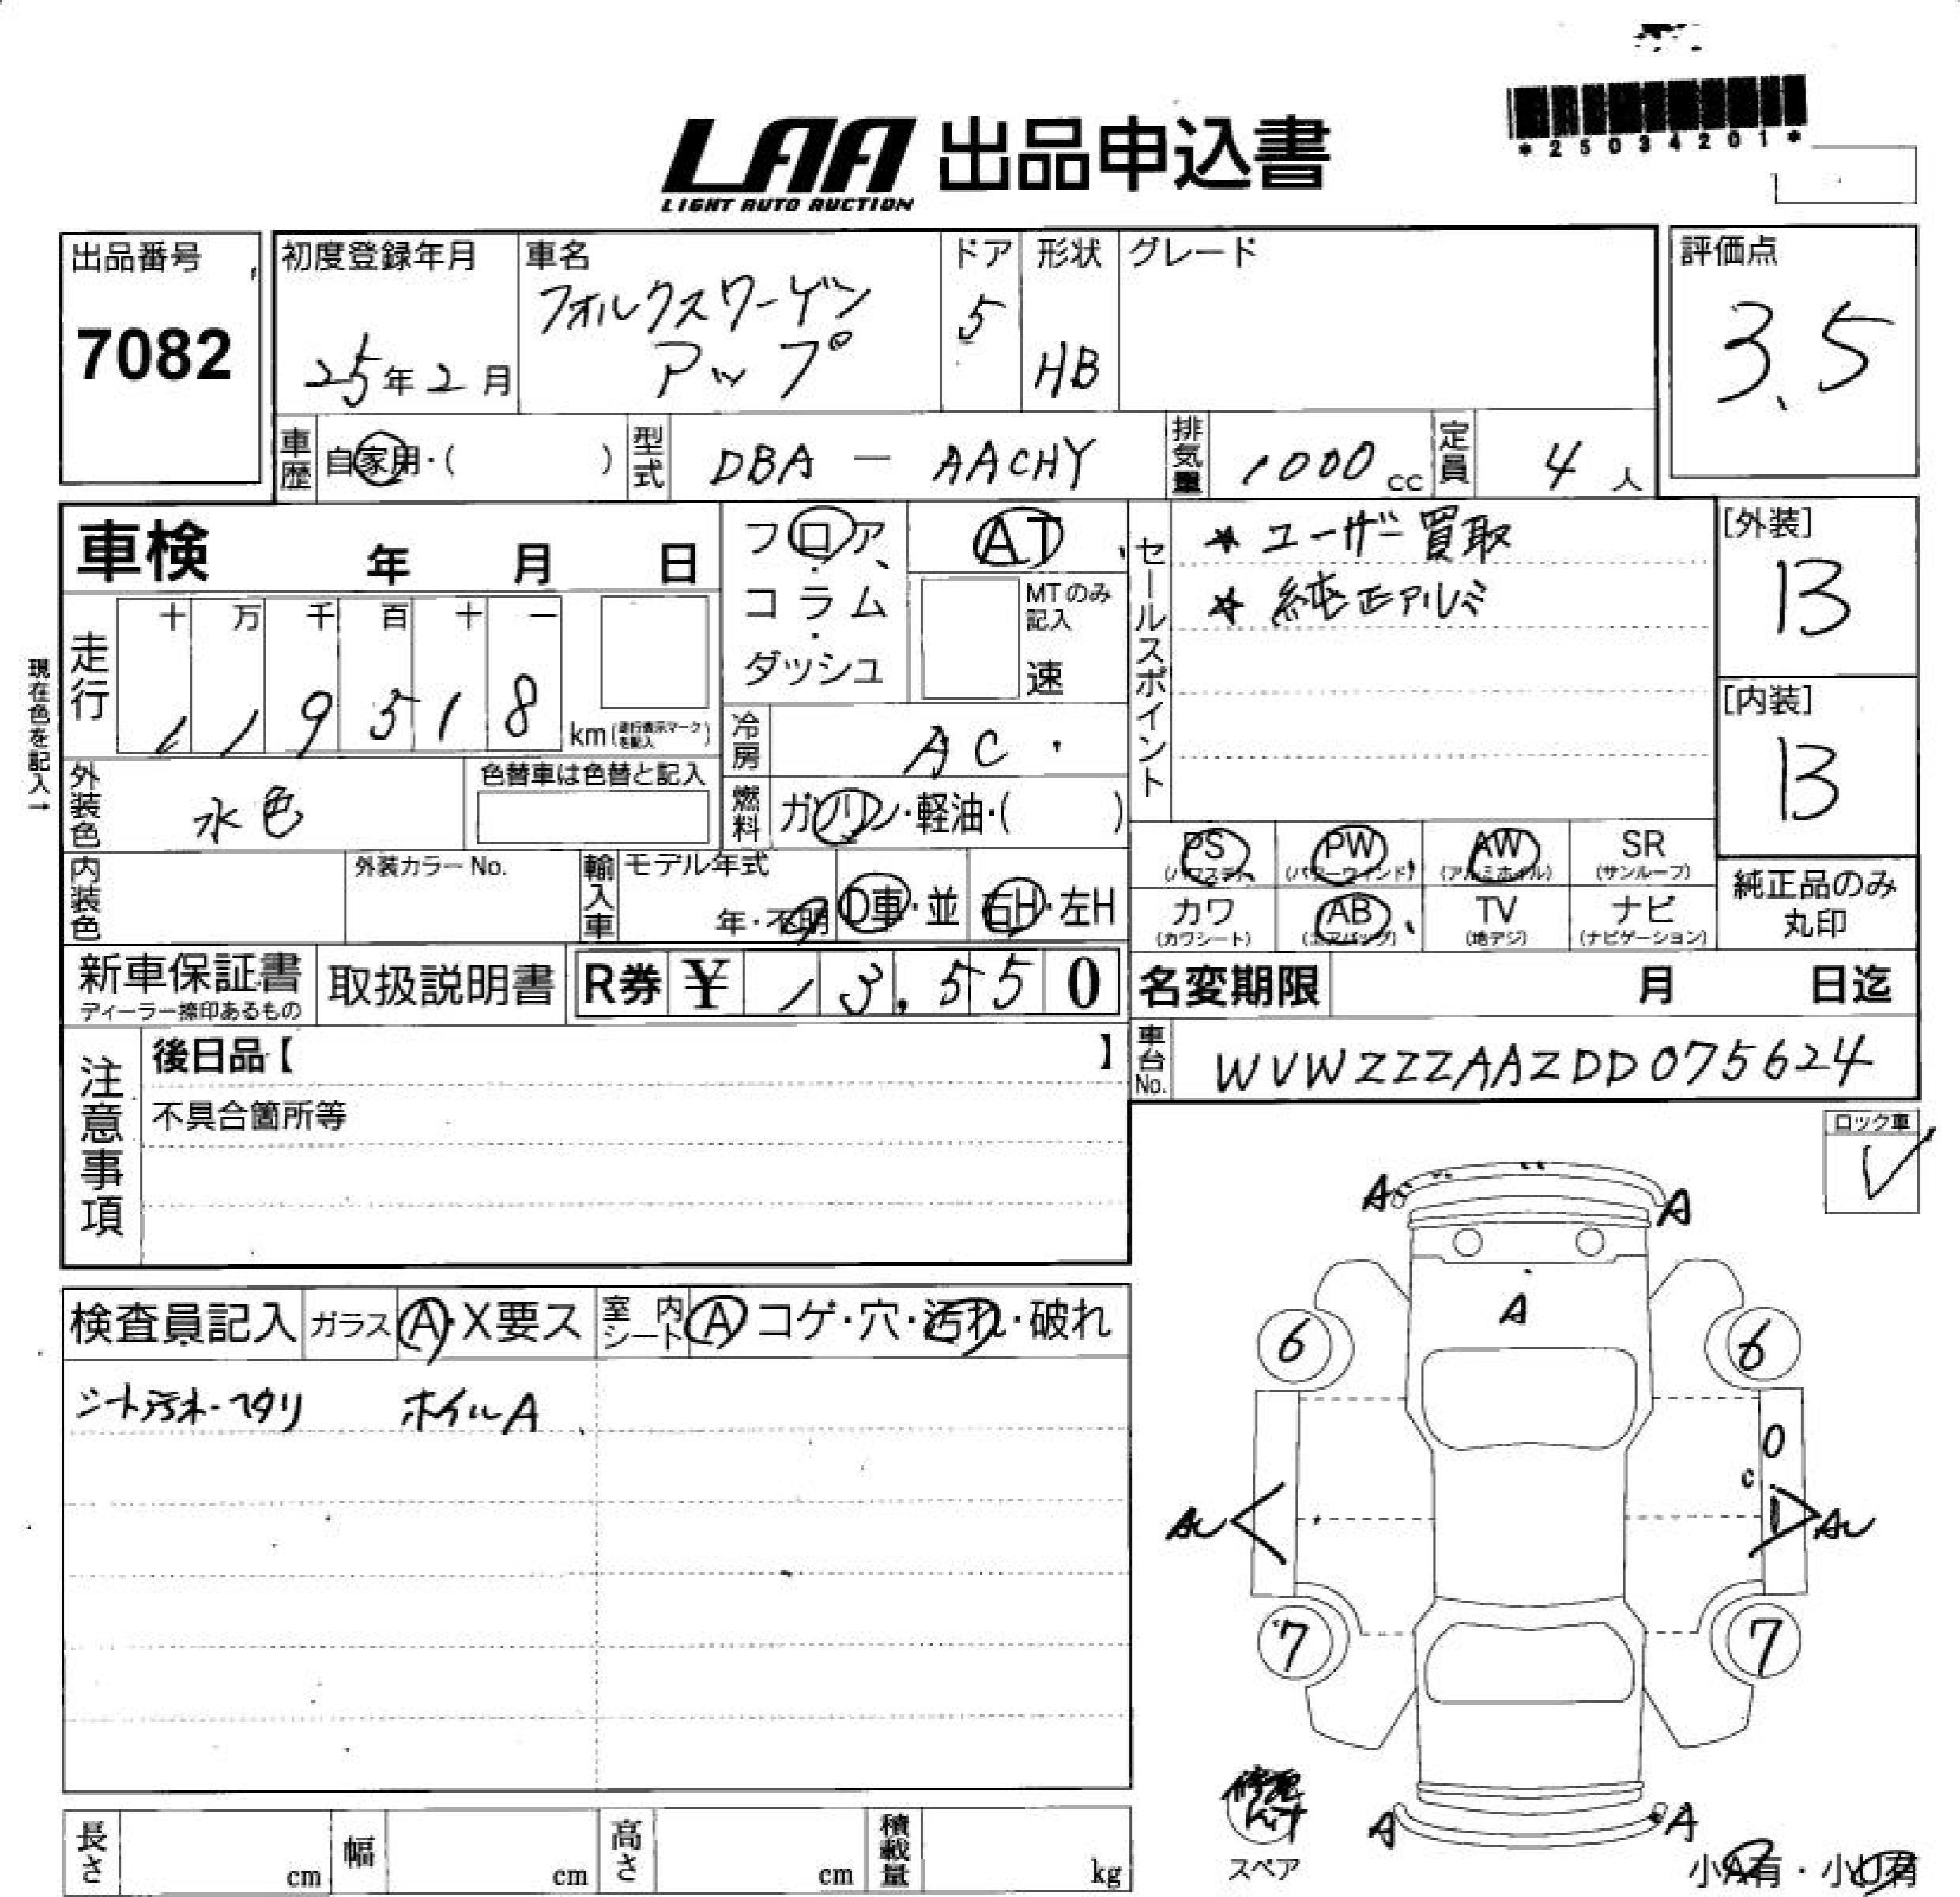 *25034201*
LAA 出品申込書
LIGHT AUTO AUCTION
出品番号
7082
初度登録年月
25年2月
車名
フォルクスワーゲン
アップ
ドア
5
形状
HB
グレード
評価点
3.5
車歴 自家用・( )
型式 DBA - AACHY
排気量 1000 cc
定員 4 人
車検 年 月 日
フロア・
コラム・
ダッシュ
AT
MTのみ記入
速
セールスポイント
★ ユーザー買取
★ 純正アルミ
[外装]
B
[内装]
B
現在色を記入→
走行
十 万 千 百 十 一
1 1 9 5 1 8
km(走行表示マークを記入)
冷房 AC
外装色 水色
色替車は色替と記入
燃料 ガソリン・軽油・( )
PS (パワステ) PW (パワーウィンド) AW (アルミホイル) SR (サンルーフ)
カワ (カワシート) AB (エアバッグ) TV (地デジ) ナビ (ナビゲーション)
純正品のみ
丸印
内装色
外装カラーNo.
輸入車
モデル年式
年・不明
D車・並
右H・左H
新車保証書
ディーラー捺印あるもの
取扱説明書
R券 ¥ 13,550
名変期限 月 日迄
車台No. WVWZZZAAZDD075624
注意事項
後日品【 】
不具合箇所等
ロック車
✓
検査員記入
ガラス A・X要ス
室内シート A コゲ・穴・汚れ・破れ
シート汚れ ヘタリ ホイルA
A A
A
6 6
O
C
AU AU
7 7
A A
スペア
小A有・小U有
長さ cm
幅 cm
高さ cm
積載量 kg